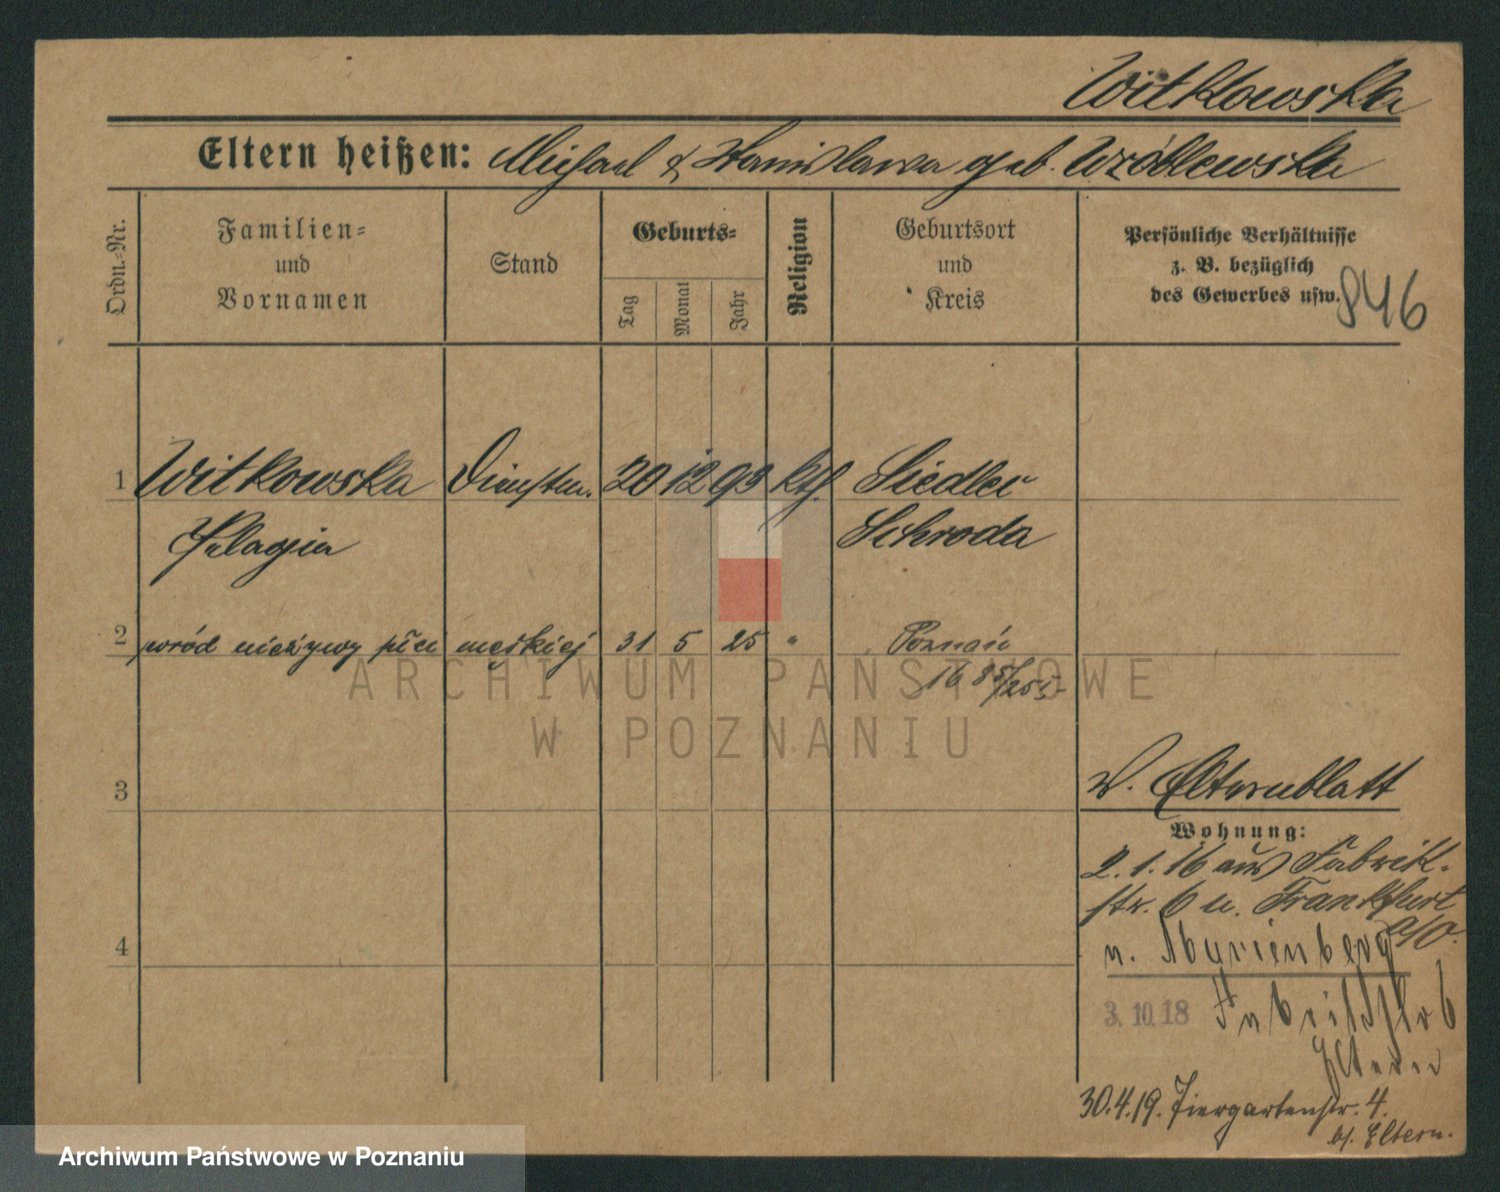 Witkowska
Eltern heißen: Michael & Stanislawa geb. Wróblewska
Ordn.-Nr.
Familien-
und
Vornamen
Stand
Geburts-
Tag
Monat
Jahr
Religion
Geburtsort
und
Kreis
Persönliche Verhältnisse
z. B. bezüglich
des Gewerbes usw.
846
1 Witkowska Dienstm. 20 12 93 kth. Siedlec
Pelagia Schroda
2 poród nieżywy płci męskiej 31 5 25 " Poznań
1685/255
3
W. Elternblatt
Wohnung:
2.1.16 aus Fabrik-
str. 6 n. Frankfurt
a/O.
4
n. Marienberg
3.10.18 Fabrikstr 6
Eltern
30.4.19. Tiergartenstr. 4.
b/. Eltern.
ARCHIWUM PAŃSTWOWE
W POZNANIU
Archiwum Państwowe w Poznaniu